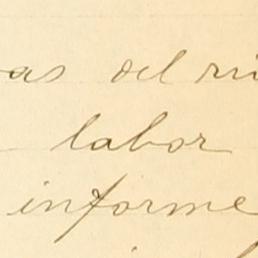 as del
labor
informe